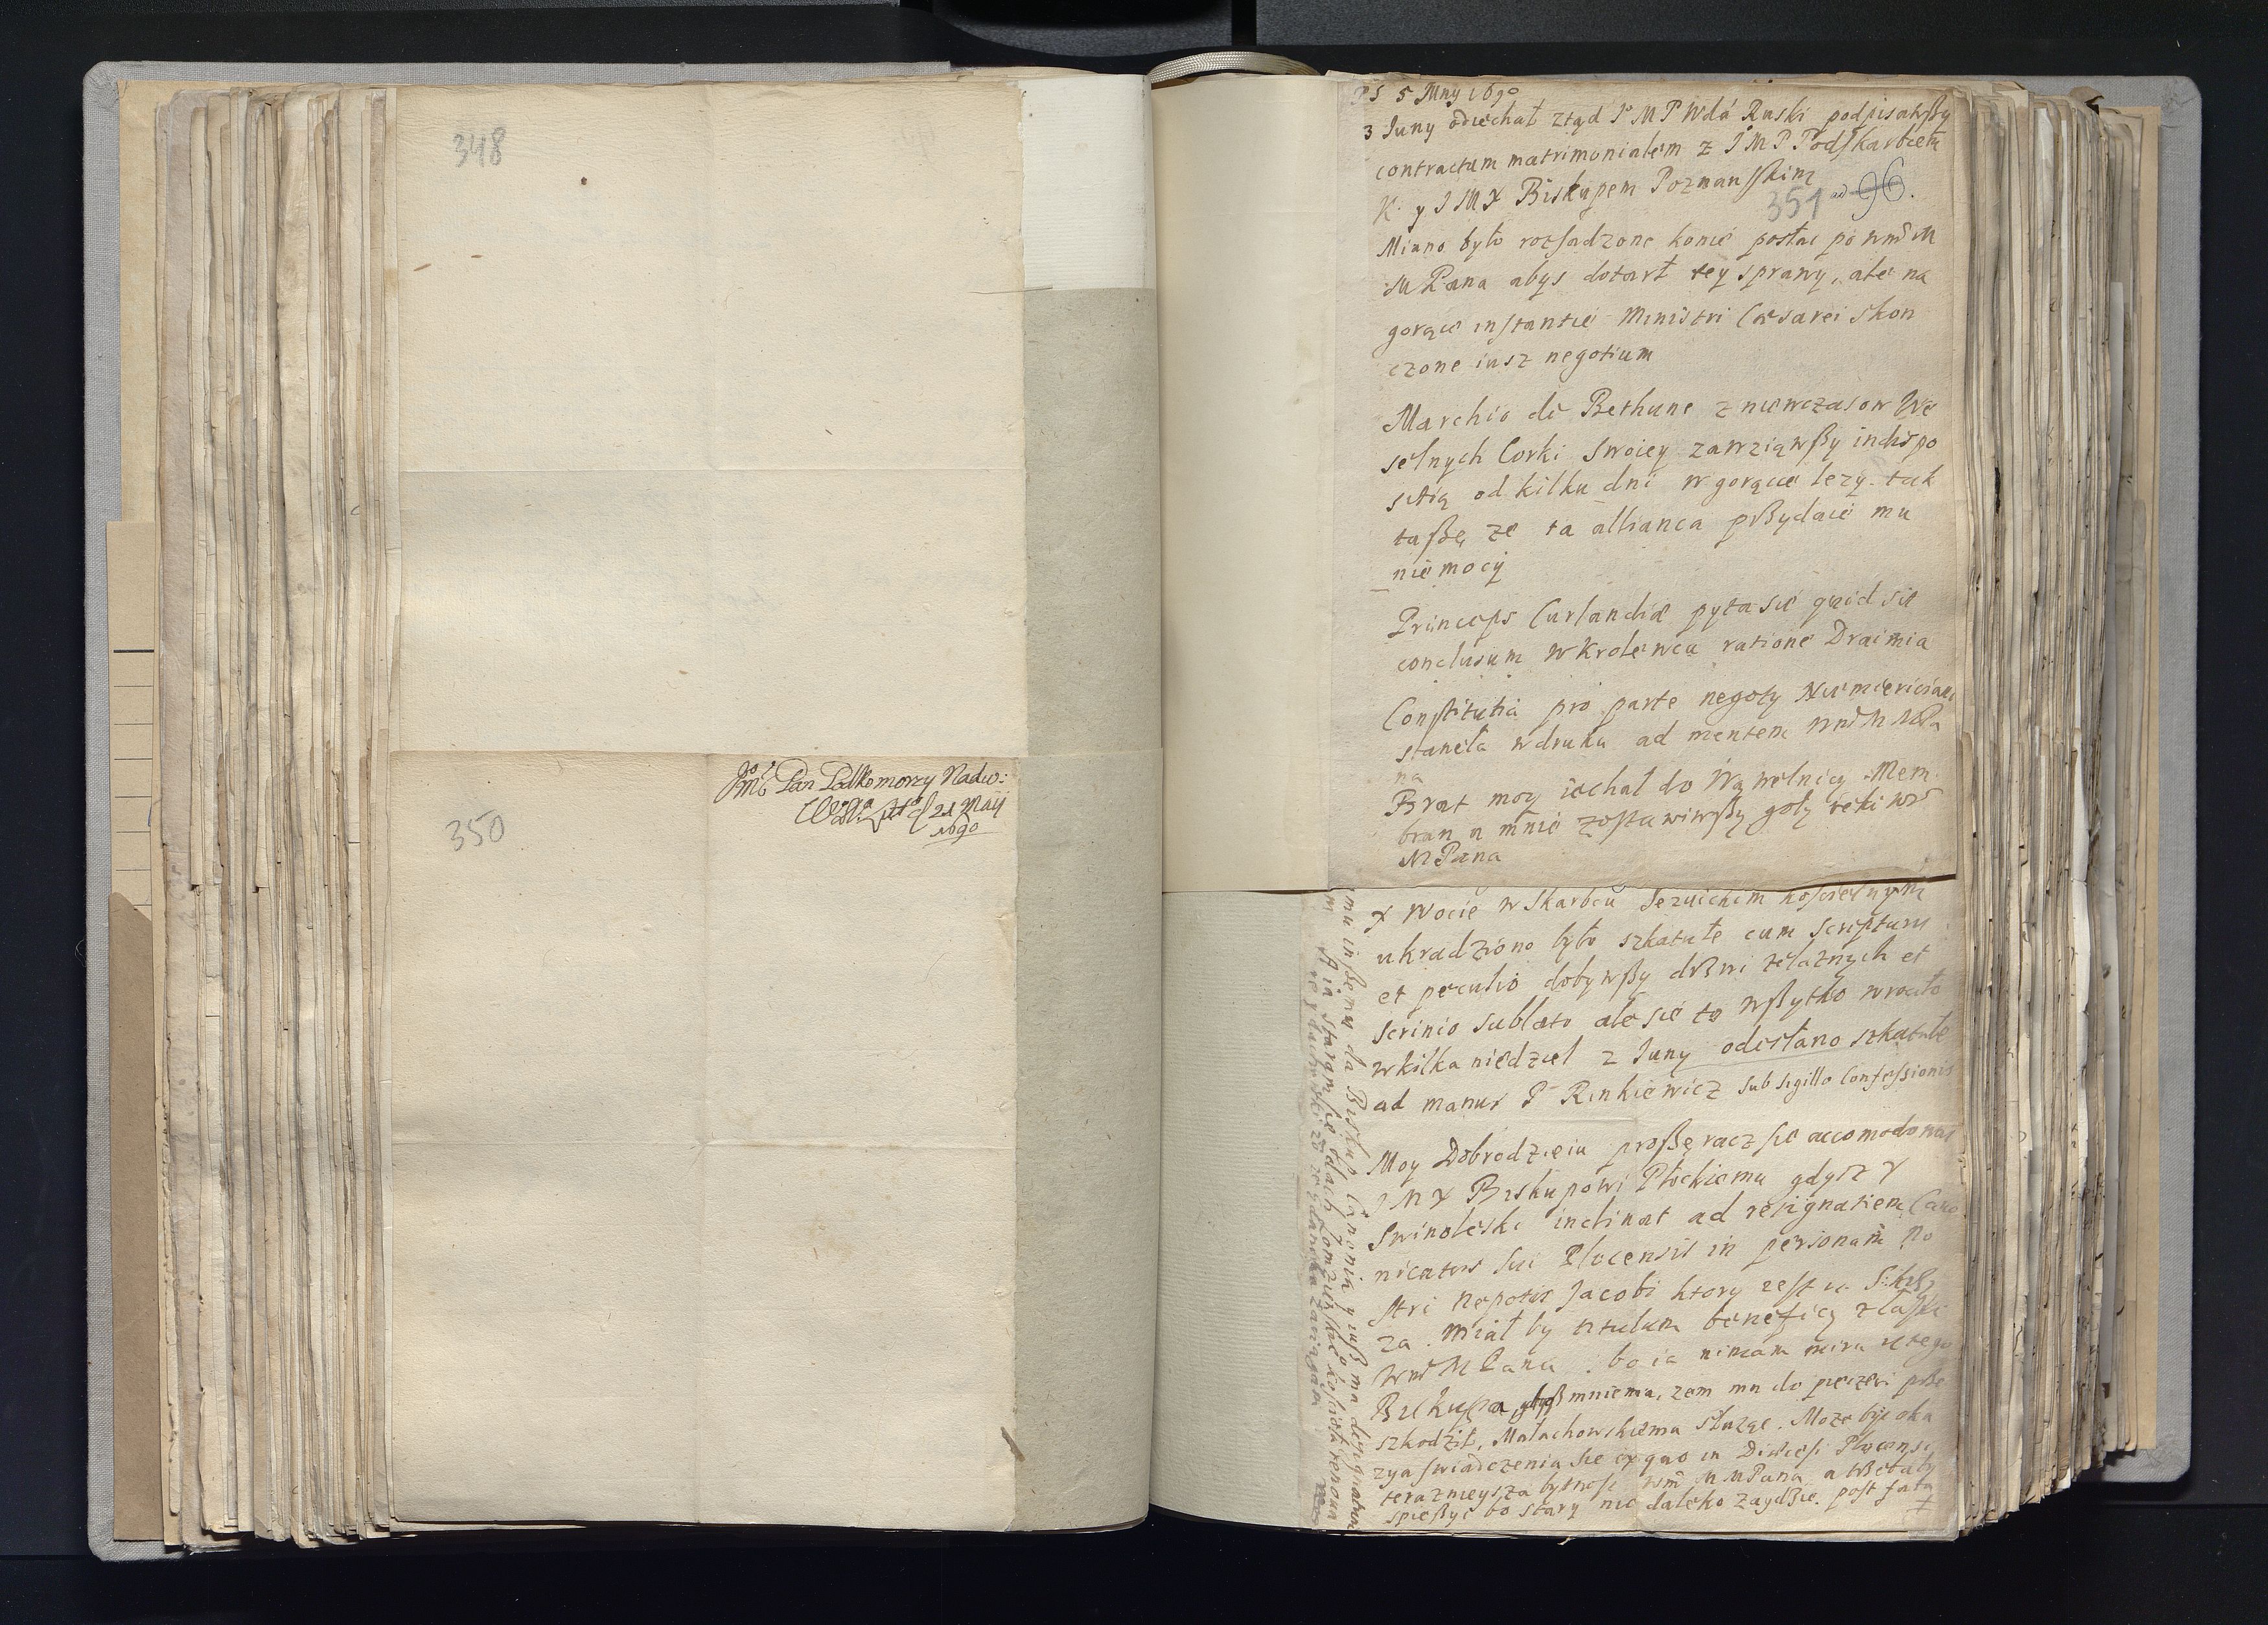 348
Jmć Pan Podkomorzy Nadw:
21 Maÿ
1690
350
PS 5 Juny 1690
3 Juny odiechał ztąd J M P Wda Ruski podpisawßy
contractum matrimonialem z J M P Podskarbiem
K. y J M X Biskupem Poznanskim
351 ad 96.
Miano było rozsadzone konie posłac po wm̃ M
M Pana abys dotarł tey sprawy, ale na
gorące instantie Ministri Cæsarei skon
czone iusz negotium
Marchio de Bethune z niewczasow We
selnych Corki swoiey zawziąwßy indispo
sitią od kilku dni w gorącce lezy. tak
taßę ze ta allianca prßydaie mu
niemocy
Princeps Curlandiæ pyta sie quid sit
conclusum w Krolewcu ratione Draimia
Constitutia pro parte negoty
staneła w druku ad mentem wm̃ M MPa
na
Brat moy iechał do Wąwelnicy. Mem
bran u mnie zostawiwßy goły reki wm̃
M Pana
X Wocie w Skarbcu Jezuickim koscielnym
ukradziono było szkatułe cum scripturis
et peculio dobywßy drßwi zelaznych et
scrinio sublato ale sie to wßytko wrociło
w kilka niedziel 2 Juny odesłano szkatułe
ad manus P Rinkiewicz sub sigillo Confessionis
Moy Dobrodzieiu proßę racz sie accomodowac
J M X Biskupowi Płockiemu gdysz X
Swinoleski inclinat ad resignatiem Cano
nicatus sui Plocensis in personam No
stri Nepotis Jacobi ktory iest u
za. Miał by titulum beneficy z łaski
Wm̃ M Pana: bo ia nimam miru u tego
Biskupa mniema, zem mu do pieczeci prße
szkodził, Małachowskiemu słuząc. Moze byc oka
zya swiadczenia sie ex quo in Diœcesi Plocensi
terazniejsza bytnosc wm̃ M MPana a trßebaby
spießyc bo stary nie daleko zaydzie. post fata
mu inßemu da Biskup Canonią y iuß ma designatum
A ia staram sie